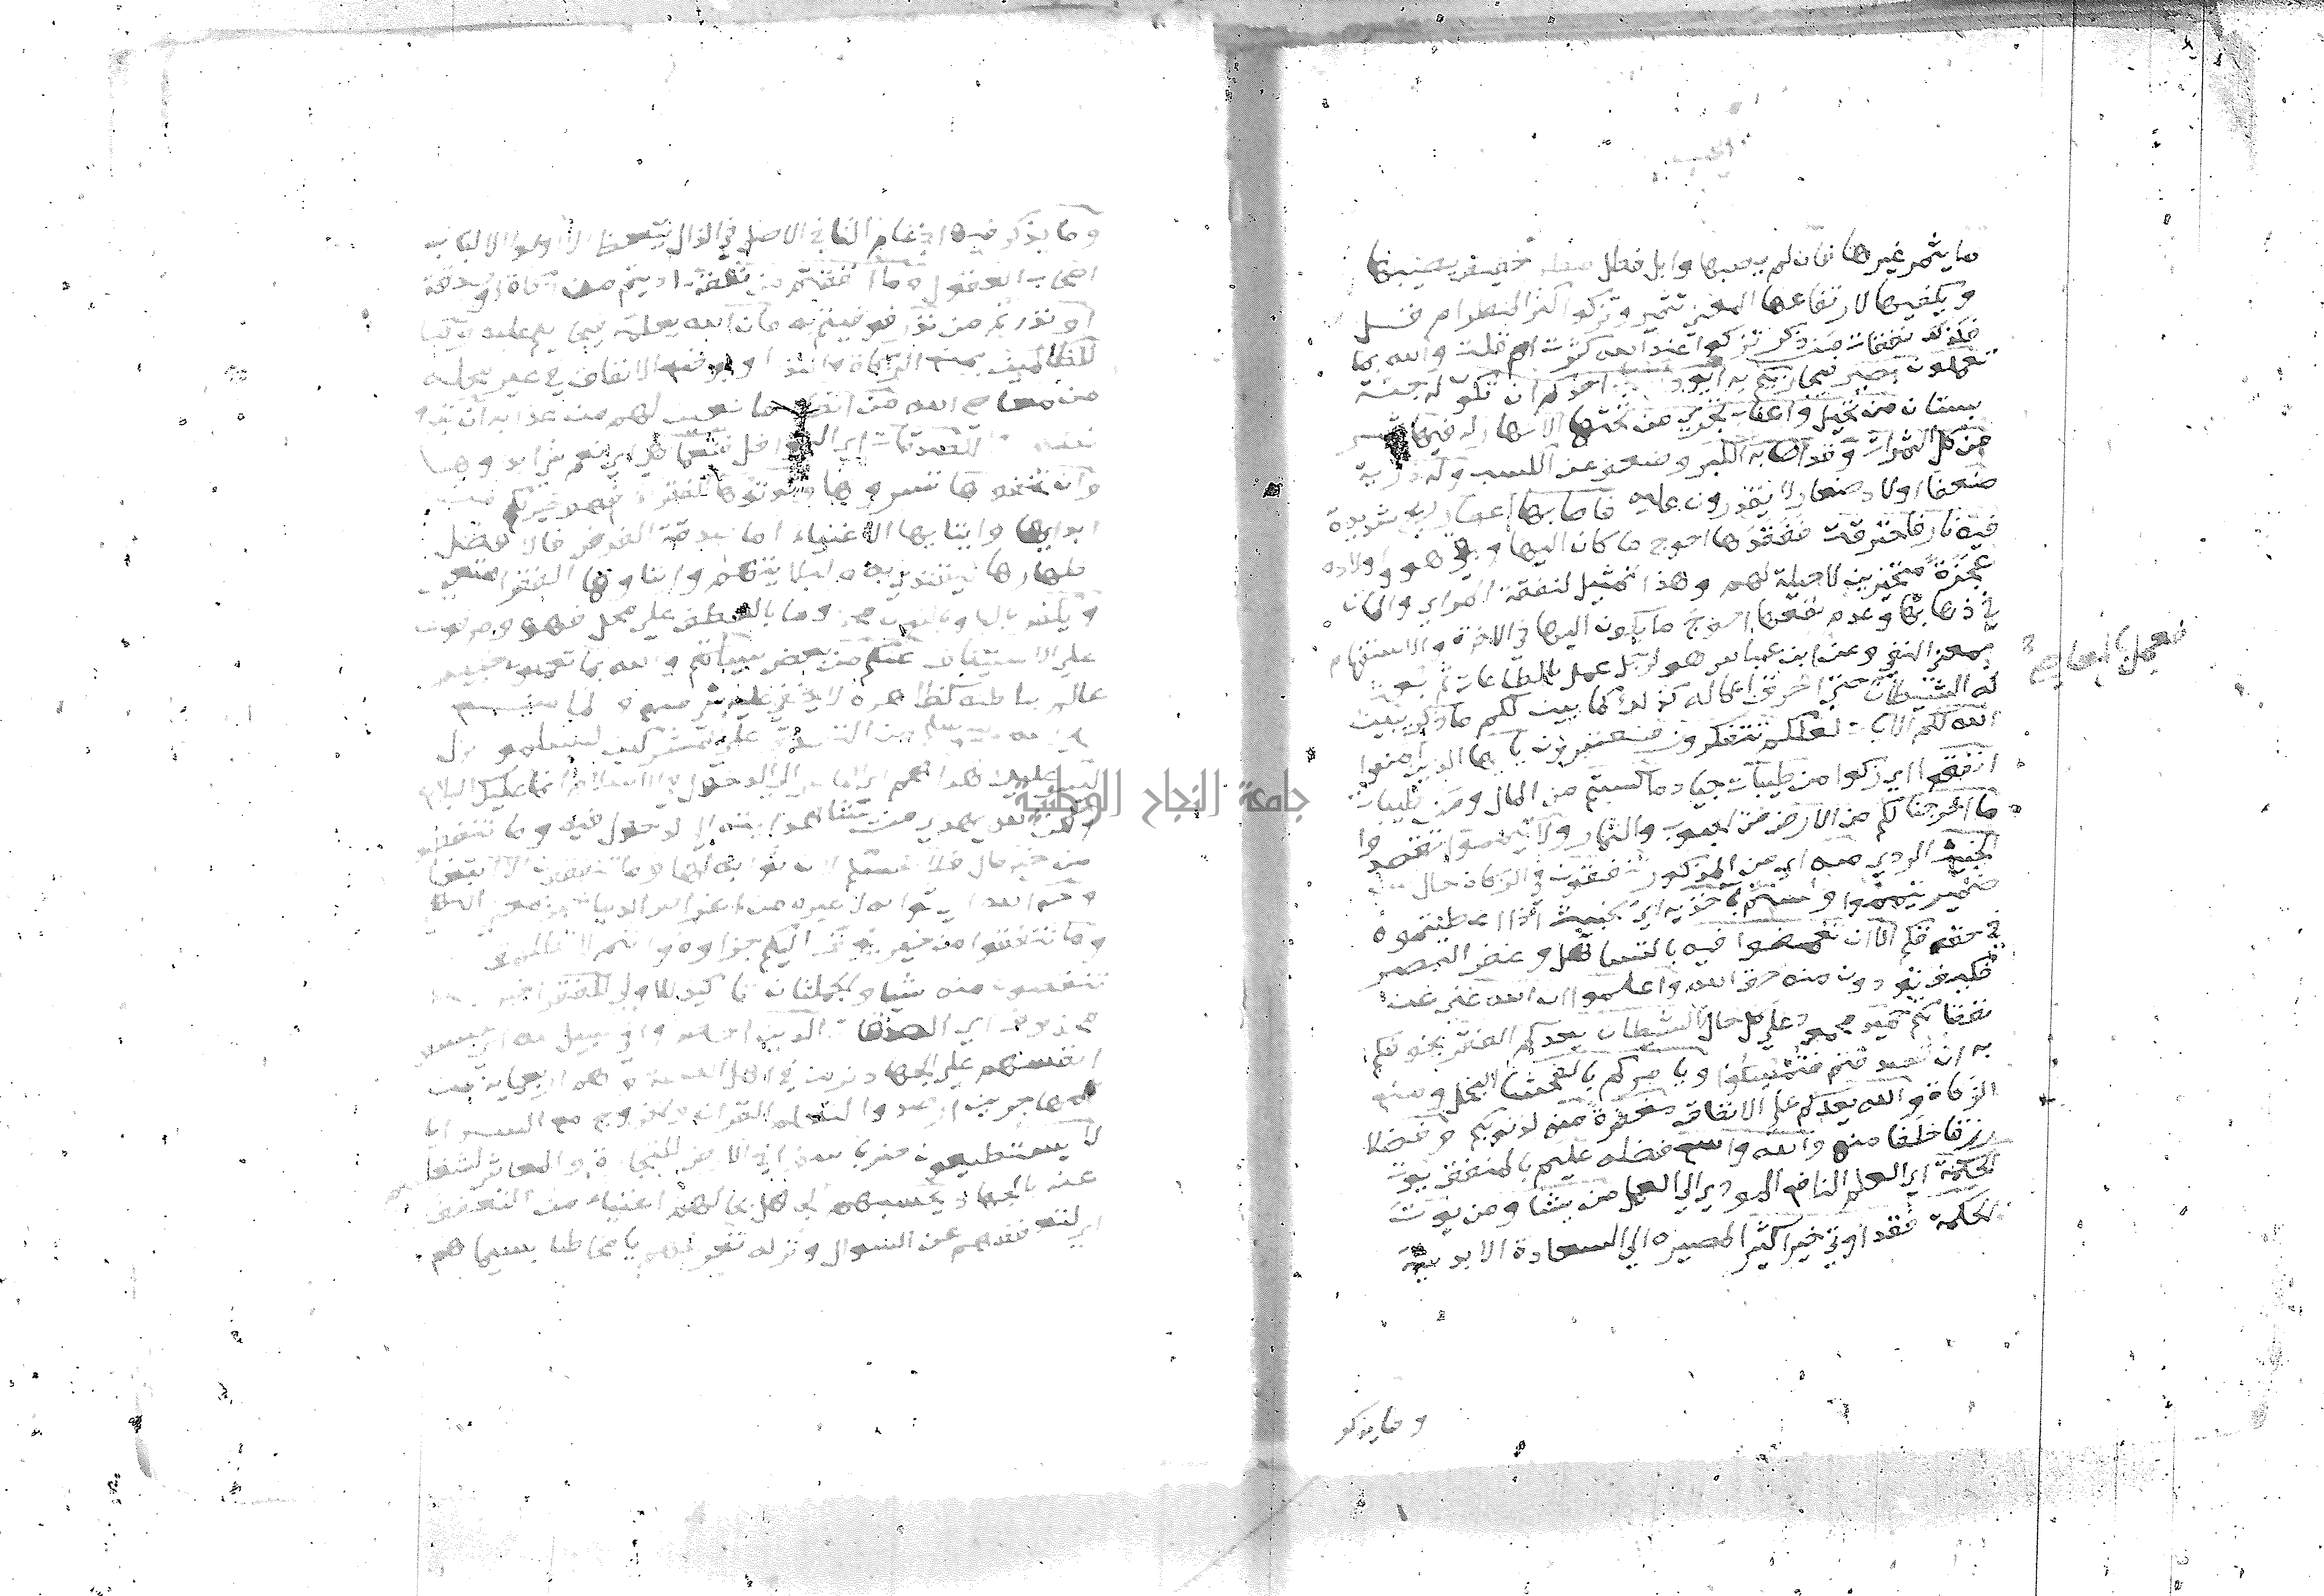 ما يثمر غيرها فان لم يصبها وابل فطل مطر خفيف يصيبها
ويكفيها لارتفاعها المعنى تثمر وتزكو اكثر المطر ام قل
فكذلك نفقات من ذكر تزكوا عند الله كثرت ام قلت والله بما
تعملون بصير فيجازيكم به ايود احدكم ان تكون له جنة
بستان من نخيل واعناب تجري من تحتها الانهار له فيها
من كل الثمرات وقد اصابه الكبر وضعف عن الكسب وله ذرية
ضعفا اولاد صغار لا يقدرون عليه فاصابها اعصار ريح شديدة
فيه نار فاحترقت ففقدها احوج ما كان اليها وبقي هو واولاده
عجزة متحيرين لا حيلة لهم وهذا تمثيل لنفقة المراي والمان
في ذهابها وعدم نفعها احوج ما يكون اليها في الاخرة والاستفهام
بمعنى النفي وعن ابن عباس هو لرجل عمل بالطاعات ثم بعث
له الشيطان فعمل بالمعاصي
حتى احرق اعماله كذلك كما بين لكم ما ذكر يبين
الله لكم الايات لعلكم تتفكرون فتعتبرون يا ايها الذين امنوا
انفقوا اي زكوا من طيبات جياد ما كسبتم من المال ومن طيبات
ما اخرجنا لكم من الارض من الحبوب والثمار ولا تيمموا تقصدوا
الخبيث الردي منه اي من المذكور تنفقون في الزكاة حال من
ضمير تيمموا ولستم باخذيه اي الخبيث اذا اعطيتموه
في حقوقكم الا ان تغمضوا فيه بالتساهل وغض البصر
فكيف تودون منه حق الله واعلموا ان الله غني عن
نفقاتكم حميد محمود على كل حال الشيطان يعدكم الفقر يخوفكم
به ان تصدقتم فتمسكوا ويامركم بالفحشا البخل ومنع
الزكاة والله يعدكم على الانفاق مغفرة منه لذنوبكم وفضلا
رزقا خلفا منه والله واسع فضله عليم بالمنفق يوتي
الحكمة اي العلم النافع المودي الى العمل من يشا ومن يوت
الحكمة فقد اوتي خيرا كثيرا لمصيره الى السعادة الابدية
وما يذكر
وما يذكر فيه ادغام التا في الاصل في الذال يتعظ الا اولوا الالباب
اصحاب العقول وما انفقتم من نفقة اديتم من زكاة او صدقة
او نذرتم من نذر فوفيتم به فان الله يعلمه فيجازيكم عليه وما
للظالمين بمنع الزكاة والنذر او بوضع الانفاق في غير محله
من معاصي الله من انصار مانعين لهم من عذابه ان تبدوا
الصدقات اي النوافل فنعما هي اي نعم شيا ابداوها
وان تخفوها تسروها وتوتوها الفقرا فهو خير لكم من
ابدايها وايتايها الاغنياء اما صدقة الفرض فالافضل
اظهارها ليقتدى به ولئلا يتهم وايتاوها الفقرا متعين
ويكفر باليا وبالنون مجزوما بالعطف على محل فهو ومرفوعا
على الاستيناف عنكم من بعض سياتكم والله بما تعملون خبير
عالم بباطنه كظاهره لا يخفى عليه شي منه ولما منع
صلى الله عليه وسلم من التصدق على المشركين ليسلموا نزل
ليس عليك هداهم اي الناس الى الدخول في الاسلام انما عليك البلاغ
ولكن الله يهدي من يشا هدايته الى الدخول فيه وما تنفقوا
من خير مال فلانفسكم لان ثوابه لها وما تنفقون الا ابتغا
وجه الله اي ثوابه لا غيره من اعراض الدنيا خبر بمعنى النهي
وما تنفقوا من خير يوف اليكم جزاوه وانتم لا تظلمون
تنقصون منه شيا والجملتان تاكيد للاولى للفقرا خبر مبتدا
محذوف اي الصدقات الذين احصروا في سبيل الله اي حبسوا
انفسهم على الجهاد نزلت في اهل الصفة وهم اربعماية من
المهاجرين ارصدوا لتعلم القران والخروج مع السرايا
لا يستطيعون ضربا سفرا في الارض للتجارة والمعاش لشغلهم
عنه بالجهاد يحسبهم الجاهل بحالهم اغنياء من التعفف
اي لتعففهم عن السوال وتركه تعرفهم يا مخاطبا بسيماهم
جامعة النجاح الوطنية